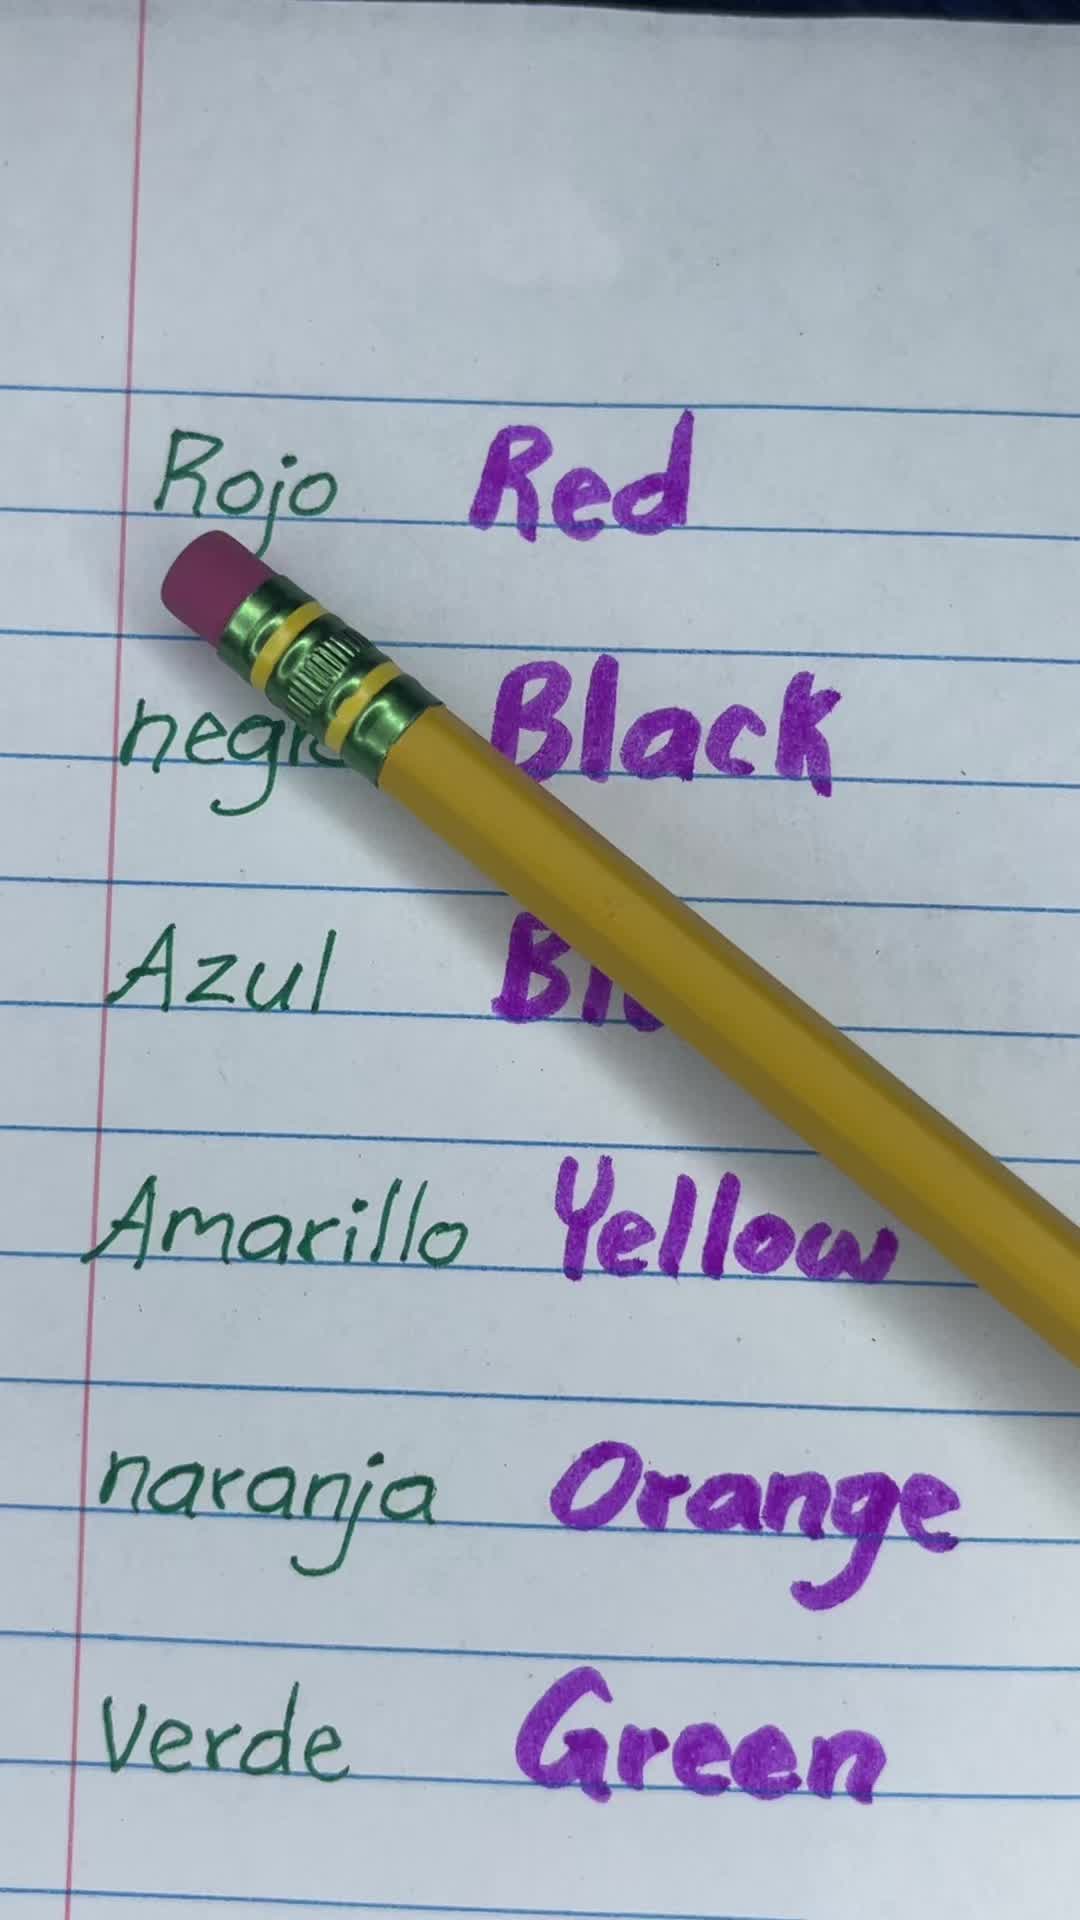 Rojo Red
negro Black
Azul
Amarillo Yellow
naranja Orange
verde Green